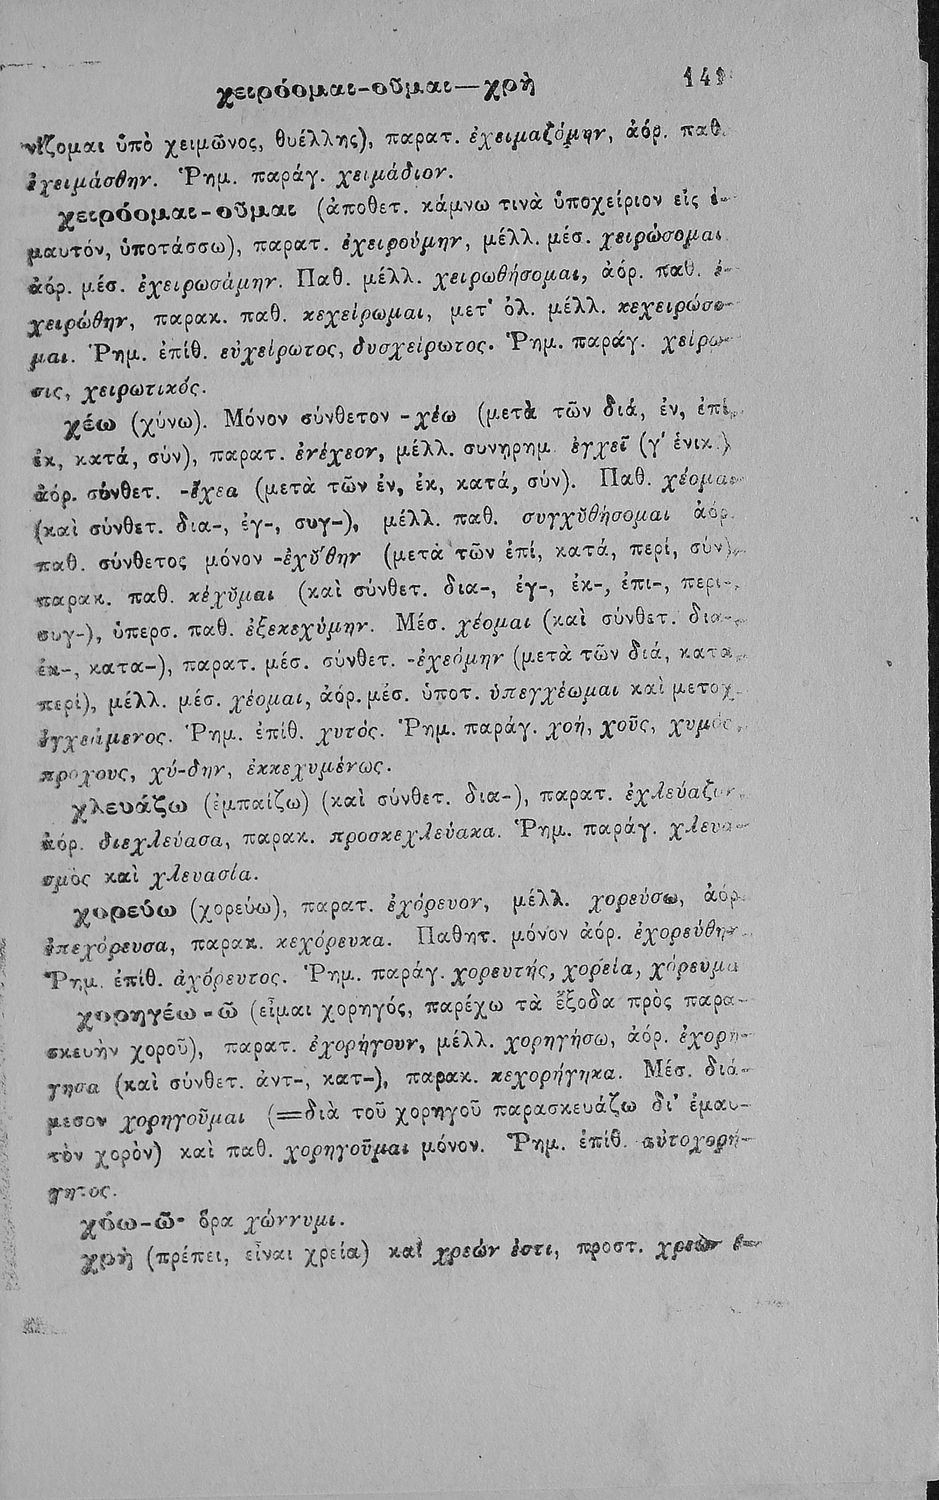 χειρόομαι-οῦμαι—χρὴ 141
νίζομαι ὑπὸ χειμῶνος, θυέλλης), παρατ. ἐχειμαζόμην, ἀόρ. παθ.
ἐχειμάσθην. Ῥημ. παράγ. χειμάδιον.
χειρόομαι-οῦμαι (ἀποθετ. κάμνω τινὰ ὑποχείριον εἰς ἐ-
μαυτόν, ὑποτάσσω), παρατ. ἐχειρούμην, μέλλ. μέσ. χειρώσομαι
ἀόρ. μέσ. ἐχειρωσάμην. Παθ. μέλλ. χειρωθήσομαι, ἀόρ. παθ. ἐ-
χειρώθην, παρακ. παθ. κεχείρωμαι, μετ' ὀλ. μέλλ. κεχειρώσο-
μαι. Ῥημ. ἐπίθ. εὐχείρωτος, δυσχείρωτος. Ῥημ. παράγ. χείρω-
σις, χειρωτικός.
χέω (χύνω). Μόνον σύνθετον -χέω (μετὰ τῶν διά, ἐν, ἐπί,
ἐκ, κατά, σύν), παρατ. ἐνέχεον, μέλλ. συνῃρημ. ἐγχεῖ (γ' ἑνικ.)
ἀόρ. σύνθετ. -έχεα (μετὰ τῶν ἐν, ἐκ, κατά, σύν). Παθ. χέομαι
(καὶ σύνθετ. δια-, ἐγ-, συγ-), μέλλ. παθ. συγχῠθήσομαι ἀόρ.
παθ. σύνθετος μόνον -ἐχῠ́θην (μετὰ τῶν ἐπί, κατά, περί, σύν),
παρακ. παθ. κέχῠμαι (καὶ σύνθετ. δια-, ἐγ-, ἐκ-, ἐπι-, περι-,
συγ-), ὑπερσ. παθ. ἐξεκεχύμην. Μέσ. χέομαι (καὶ σύνθετ. δια-,
ἐκ-, κατα-), παρατ. μέσ. σύνθετ. -ἐχεόμην (μετὰ τῶν διά, κατά,
περί), μέλλ. μέσ. χέομαι, ἀόρ. μέσ. ὑποτ. ὑπεγχέωμαι καὶ μετοχ.
ἐγχεάμενος. Ῥημ. ἐπίθ. χυτός. Ῥημ. παράγ. χοή, χοῦς, χυμός,
πρόχους, χύ-δην, ἐκκεχυμένως.
χλευάζω (ἐμπαίζω) (καὶ σύνθετ. δια-), παρατ. ἐχλεύαζον,
ἀόρ. διεχλεύασα, παρακ. προσκεχλεύακα. Ῥημ. παράγ. χλευα-
σμὸς καὶ χλευασία.
χορεύω (χορεύω), παρατ. ἐχόρευον, μέλλ. χορεύσω, ἀόρ.
ἐπεχόρευσα, παρακ. κεχόρευκα. Παθητ. μόνον ἀόρ. ἐχορεύθην.
Ῥημ. ἐπίθ. ἀχόρευτος. Ῥημ. παράγ. χορευτής, χορεία, χόρευμα
χορηγέω-ῶ (εἶμαι χορηγός, παρέχω τὰ ἔξοδα πρὸς παρα-
σκευὴν χοροῦ), παρατ. ἐχορήγουν, μέλλ. χορηγήσω, ἀόρ. ἐχορή-
γησα (καὶ σύνθετ. ἀντ-, κατ-), παρακ. κεχορήγηκα. Μέσ. διά-
μεσον χορηγοῦμαι (=διὰ τοῦ χορηγοῦ παρασκευάζω δι' ἐμαυ-
τὸν χορὸν) καὶ παθ. χορηγοῦμαι μόνον. Ῥημ. ἐπίθ. αὐτοχορή-
γητος.
χόω-ῶ· ὅρα χώννυμι.
χρὴ (πρέπει, εἶναι χρεία) καὶ χρεών ἐστι, προστ. χρεὼν ἔ-